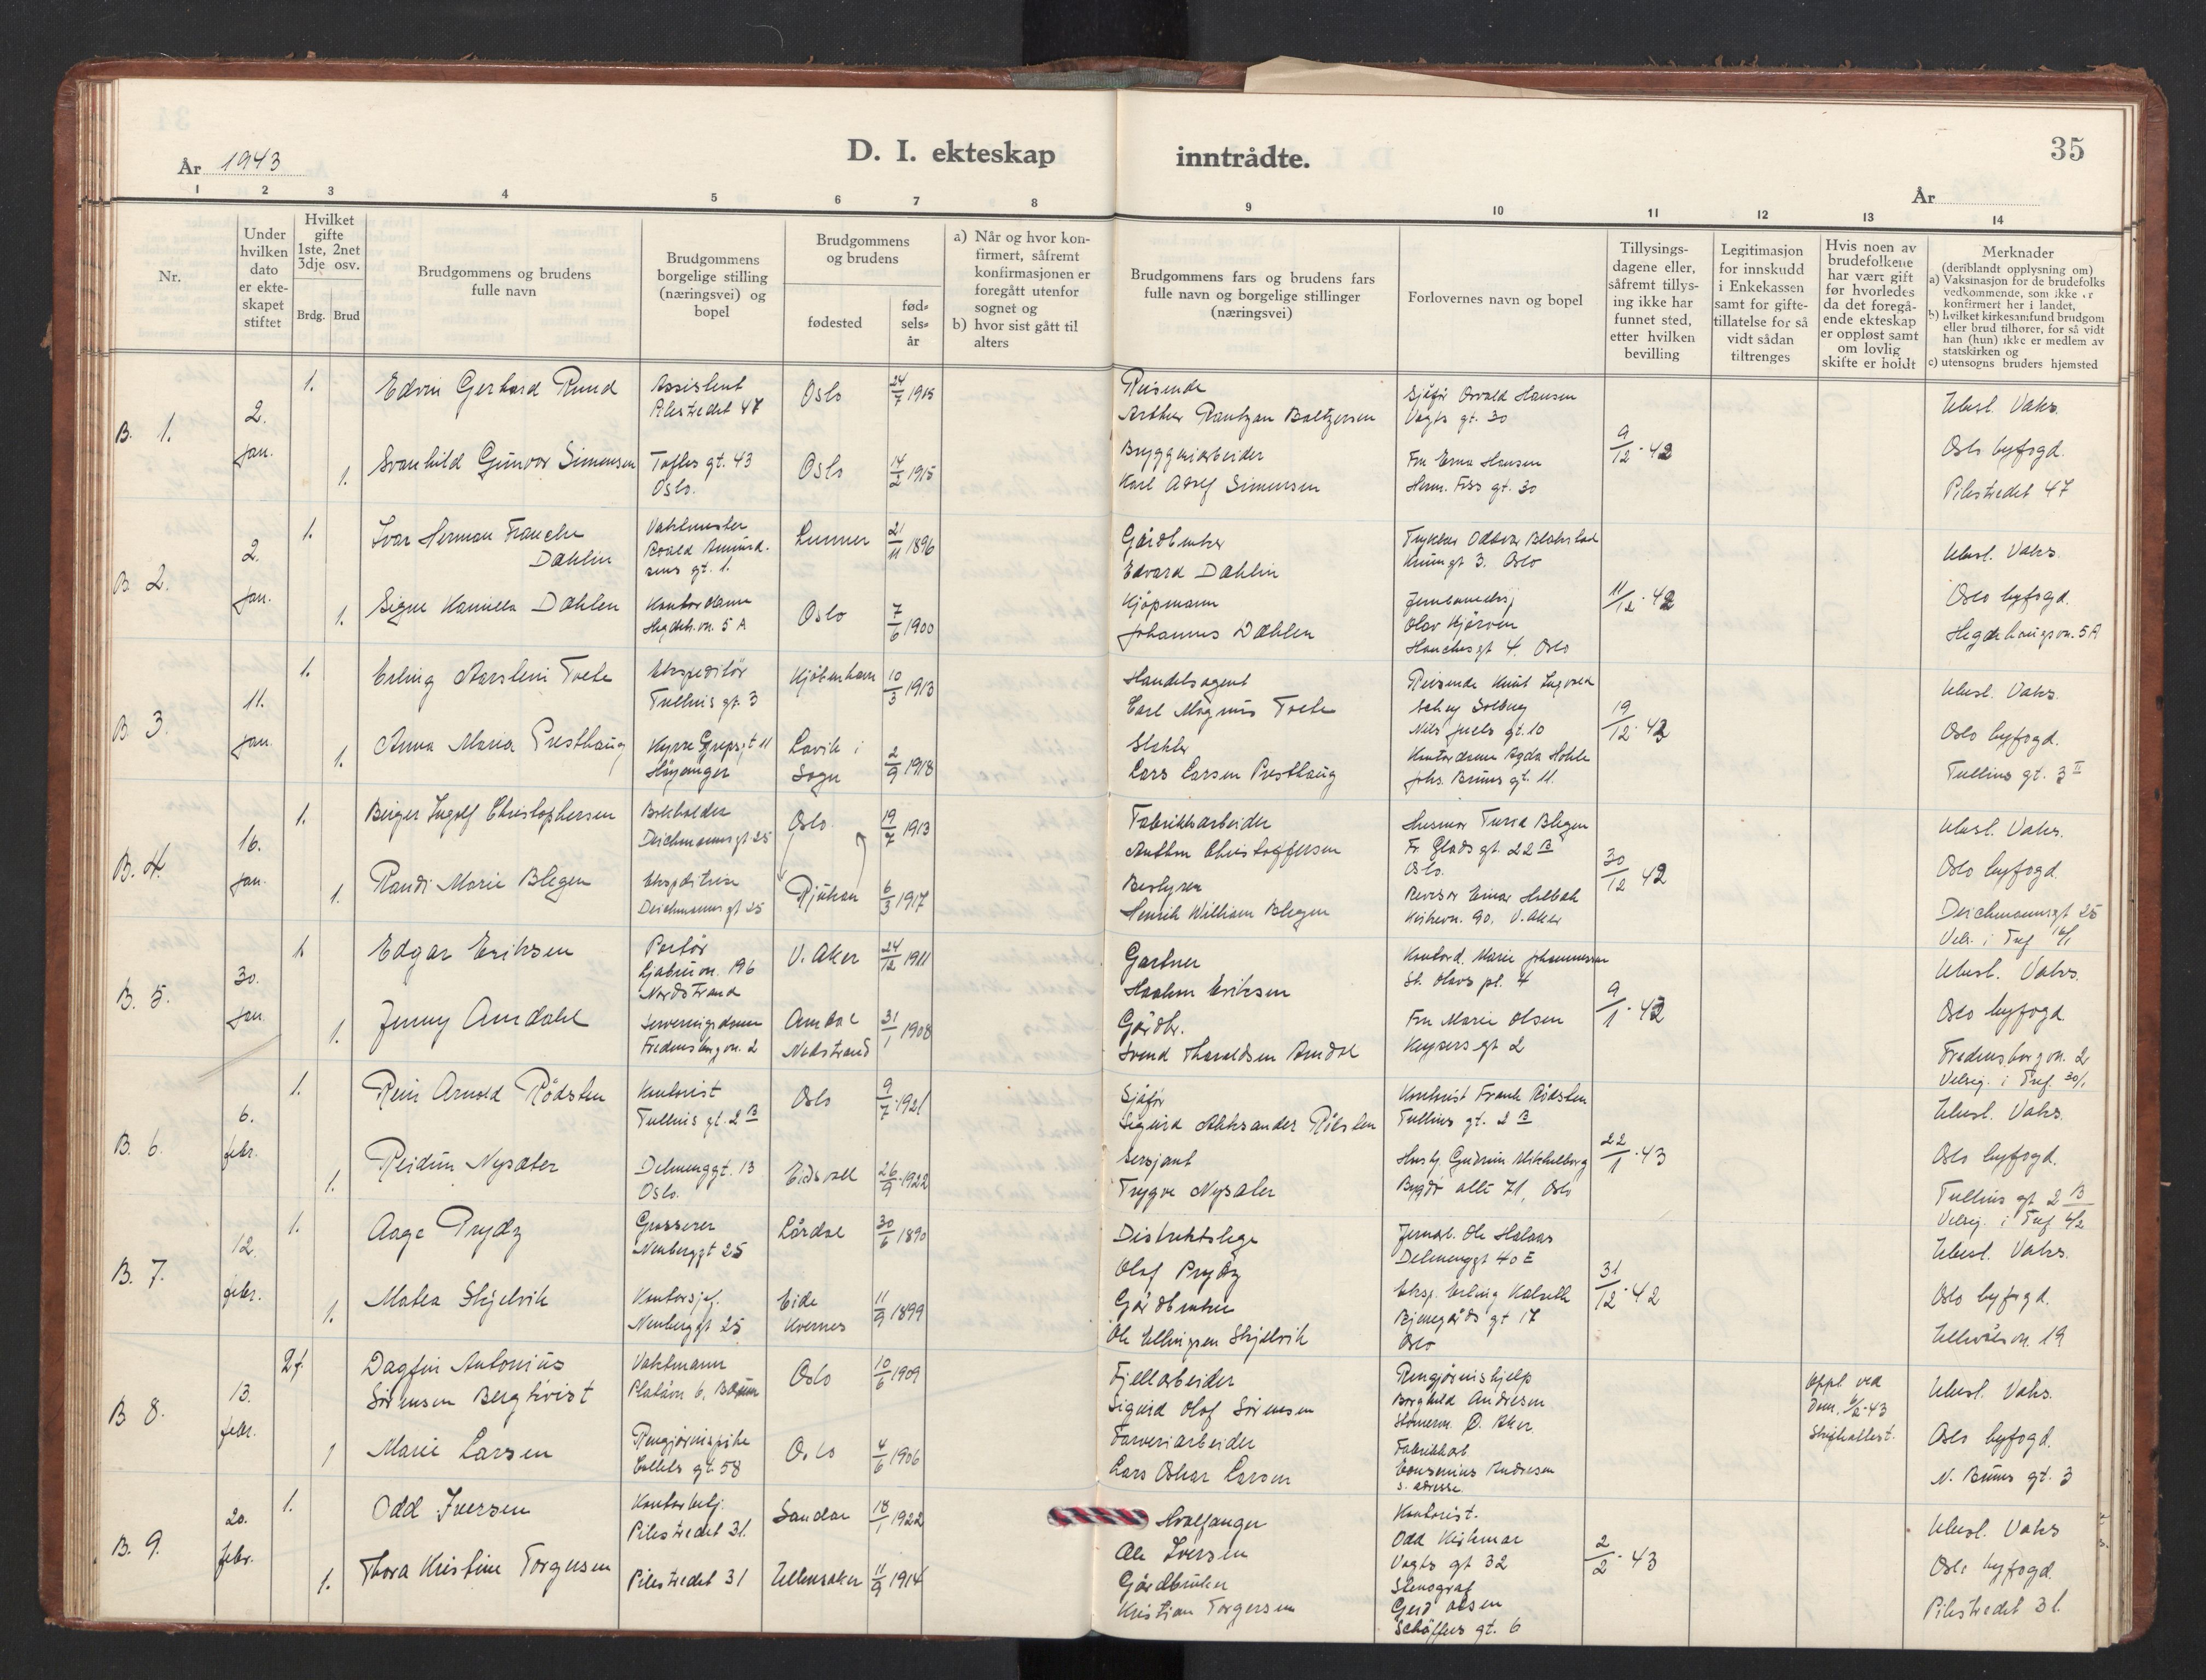 År 1943
D. I. ekteskap inntrådte.
35
År
1 2 3 4 5 6 7 8 9 10 11 12 13 14
Nr.
Under hvilken dato er ekte-skapet stiftet
Hvilket gifte 1ste, 2net 3dje osv.
Brdg. Brud
Brudgommens og brudens fulle navn
Brudgommens borgelige stilling (næringsvei) og bopel
Brudgommens og brudens
fødested
fød-sels-år
a) Når og hvor kon-firmert, såfremt konfirmasjonen er foregått utenfor sognet og
b) hvor sist gått til alters
Brudgommens fars og brudens fars fulle navn og borgelige stillinger (næringsvei)
Forlovernes navn og bopel
Tillysings-dagene eller, såfremt tillys-ing ikke har funnet sted, etter hvilken bevilling
Legitimasjon for innskudd i Enkekassen samt for gifte-tillatelse for så vidt sådan tiltrenges
Hvis noen av brudefolkene har vært gift før hvorledes da det foregå-ende ekteskap er oppløst samt om lovlig skifte er holdt
Merknader
(deriblandt opplysning om)
a) Vaksinasjon for de brudefolks vedkommende, som ikke er konfirmert her i landet,
b) hvilket kirkesamfund brudgom eller brud tilhører, for så vidt han (hun) ikke er medlem av statskirken og
c) utensogns bruders hjemsted
B. 1.
2. jan.
1.
Edvin Gerhard Rund
Assistent
Pilestredet 47
Oslo
24/7 1915
Reisende
Arthur Rantzau Baltzersen
Sjåfør Osvald Hansen
Vogts gt. 30
9/12 - 42
Utest. Vaks.
1.
Svanhild Gunvor Simensen
Toftes gt. 43
Oslo.
Oslo
14/2 1915
Bryggeriarbeider
Karl Adolf Simensen
Fru Erna Hansen
Herm. Foss gt. 30
Oslo byfogd.
Pilestredet 47
B. 2.
2. jan.
1.
Ivar Herman Francke
Dahlin
Vaktmester
Roald Amund-
sens gt. 1.
Lunner
21/11 1896
Gårdbruker
Edvard Dahlin
Trykker Oddvar Blakstad
Krumgt 3. Oslo
11/12 - 42
Utest. Vaks.
1.
Signe Kamilla Dahlen
Kontordame
Hegdeh.vn. 5 A
Oslo
7/6 1900
Kjøpmann
Johannes Dahlen
Olav Kjørven
Hauchs gt 4. Oslo
Oslo byfogd.
Hegdehaugsvn. 5A
B. 3.
11. jan.
1.
Erling Karsteni Tvete
Ekspeditør
Tullins gt. 3
Kjøbenhavn
10/3 1913
Handelsagent
Carl Magnus Tvete
Reisende Knut Ingvald
Solberg
Nils Juels gt. 10
19/12 - 42
Utest. Vaks.
1.
Anna Maria Presthaug
Kyrre Grepsgt 11
Høyanger
Lavik i
Sogn
2/9 1918
Lars Larsen Presthaug
Kontordame Agda Hohle
Johs. Bruns gt. 11.
Oslo byfogd.
Tullins gt. 3 II
B. 4.
16. jan.
1.
Birger Ingolf Christophersen
Bokholder
Deichmanns gt 25
Oslo
19/7 1913
Fabrikkarbeider
Anthon Christoffersen
Husmor Turid Blegen
Fr. Glads gt. 22 B
Oslo.
30/12 42
Utest. Vaks.
1.
Randi Marie Blegen
Ekspeditrise
Deichmanns gt 25
Rjukan
6/3 1917
Bestyrer
Henrik William Blegen
Revisor Einar Holbak
Kirkevn. 90. V. Aker
Oslo byfogd.
Deichmannsgt 25
Vels. i Tref 16/1
B. 5.
30. jan.
1.
Edgar Eriksen
Portør
Ljabruvn. 196
Nordstrand
V. Aker
24/12 1911
Gartner
Haakon Eriksen
Kontord. Marie Johannessen
St. Olavs pl. 4
9/1 - 43
Utest. Vaks.
1.
Jenny Amdahl
Serveringsdame
Fredensborgvn. 2
Amdal
Nedstrand
31/1 1908
Gårdbr.
Svend Tharaldsen Amdal
Fru Marie Olsen
Keysers gt 2
Oslo byfogd.
Fredensborgvn. 2
Velsig. i Tref. 30/1
B. 6.
6. febr.
1.
Rein Arnold Rødsten
Kontorist
Tullins gt. 2 B
Oslo
9/7 - 1921
Sjåfør
Sigurd Aleksander Rødsten
Kontorist Frank Rødsten
Tullins gt. 2 B
22/1 - 43
Utest. Vaks.
1.
Reidun Nysæter
Delenenggt. 13
Oslo.
Eidsvoll
26/9 1922
Sersjant
Trygve Nysæter
Bygdø allé 71, Oslo
Oslo byfogd.
Tullins gt 2 B
Velsig. i Tref 6/2
B. 7.
12. febr.
1.
Aage Prydz
Grosserer
Neuberggt 25
Lårdal
30/6 1890
Distriktslege
Olaf Prydz
Jernarb. Ole Halaas
Delenenggt 40 E
31/12 - 42
Utest. Vaks.
1.
Matea Skjelvik
Kontorsjef.
Neuberggt 25
Eide
Kvernes
11/9 1899
Gårdbruker
Ole Ellingsen Skjelvik
Eksp. Erling Kalseth
Bjerregårds gt 17
Oslo
Oslo byfogd.
Ullevålsvn. 19
B 8.
13. febr.
2 f.
Dagfin Antonius
Sørensen Bergkvist
Vaktmann
Platåvn 6, Bærum
Oslo
10/6 1909
Fjellarbeider
Sigurd Olof Sørensen
Rengjøringshjelp
Borghild Andresen
Ø. Aker
Oppl ved
Dom. 6/2-43
Utest. Vaks.
1
Marie Larsen
Rengjøringspike
Colletts gt. 58
Oslo
4/6 1906
Garveriarbeider
Lars Oskar Larsen
Fabrikkarb
Andresen
s. adresse
Oslo byfogd.
N. Bruns gt. 3
B. 9.
20. febr.
1.
Odd Iversen
Kontorbetj.
Pilestredet 31.
Sandar
18/1 1922
Hvalfanger
Ole Iversen
Kontorist.
Odd Kirkmar
Vogts gt 32
2/2 - 43
Utest. Vaks
1.
Thora Kristine Torgersen
Pilestredet 31
Ullensaker
11/9 1914
Gårdbruker
Kristian Torgersen
Stenograf
Gerd Olsen
Schøffers gt. 6
Oslo byfogd.
Pilestredet 31.